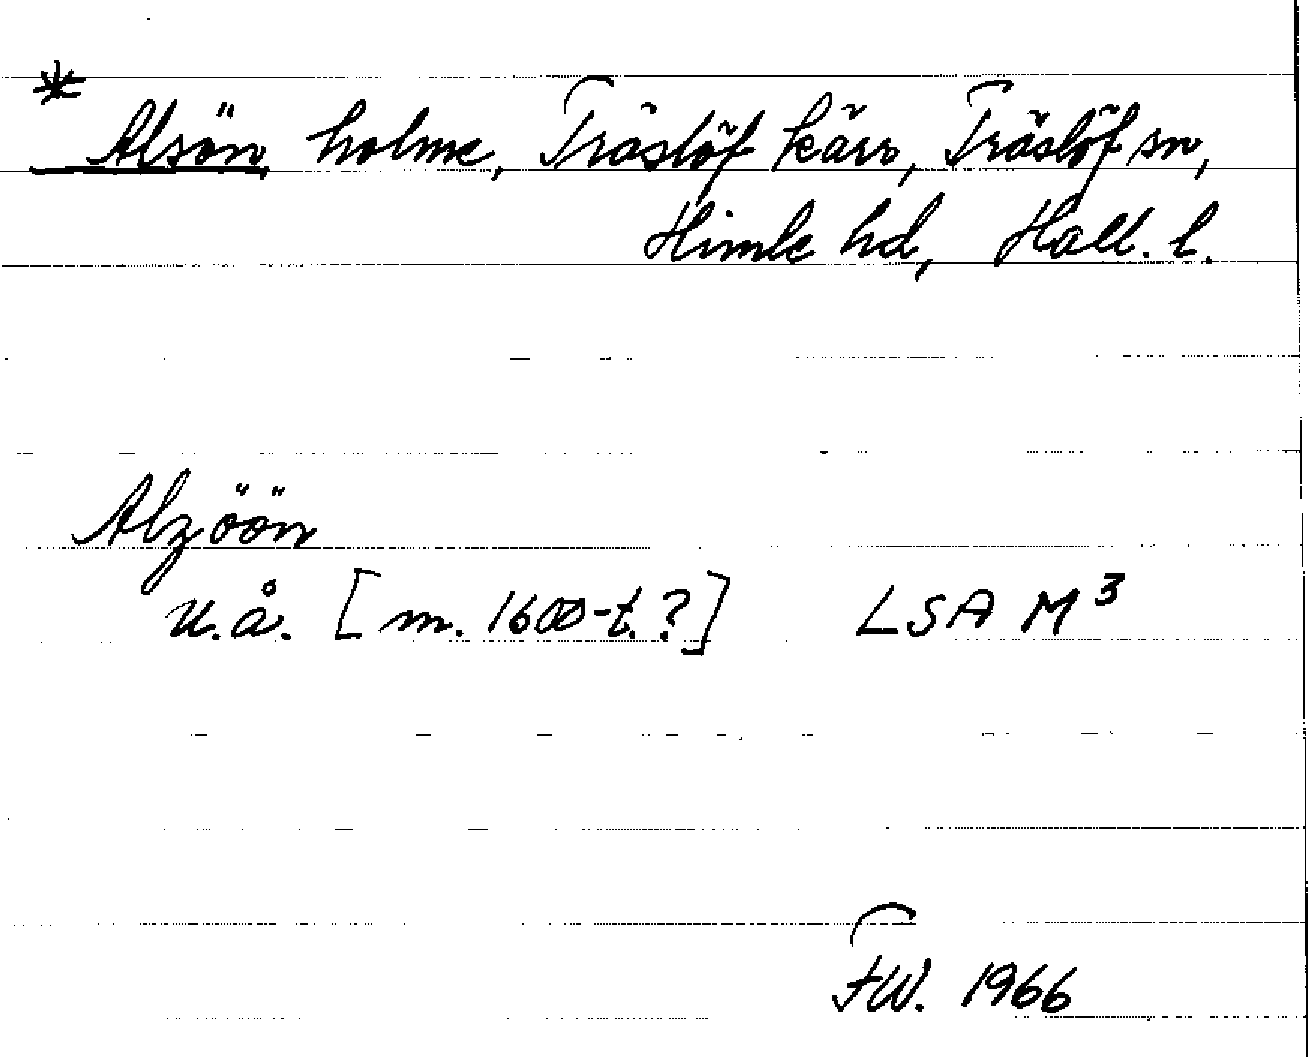 * Alsön holme, Träslöf kärr, Träslöf sn,
Himle hd, Hall. l.
Alzöön
u.å. [m. 1600-t.?] LSA M³
FW. 1966